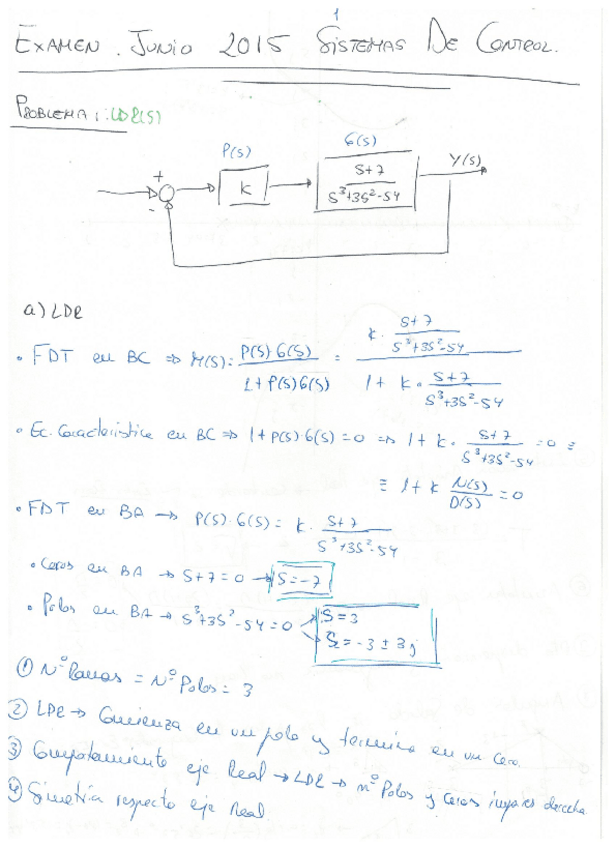 1
EXAMEN. JUNIO 2015 SISTEMAS DE CONTROL.
PROBLEMA 1: LDR(S)
P(s) G(s)
+ K (s+7)/(s³+3s²-54) Y(s)
-
a) LDR
• FDT en BC ⇒ M(s): P(s)·G(s)/(1+P(s)G(s)) = (K · (s+7)/(s³+3s²-54))/(1 + K · (s+7)/(s³+3s²-54))
• Ec. Característica en BC ⇒ 1+P(s)·G(s)=0 ⇒ 1+K· (s+7)/(s³+3s²-54) =0 ≡
≡ 1+K N(s)/D(s) =0
• FDT en BA → P(s)·G(s) = K · (s+7)/(s³+3s²-54)
• Ceros en BA → s+7=0 → s=-7
• Polos en BA → s³+3s²-54=0 → s=3
s=-3±3j
① Nº Ramas = Nº Polos = 3
② LDR → Comienza en un polo y termina en un cero.
③ Comportamiento eje Real → LDR → nº Polos y ceros impares derecha
④ Simetría respecto eje Real.